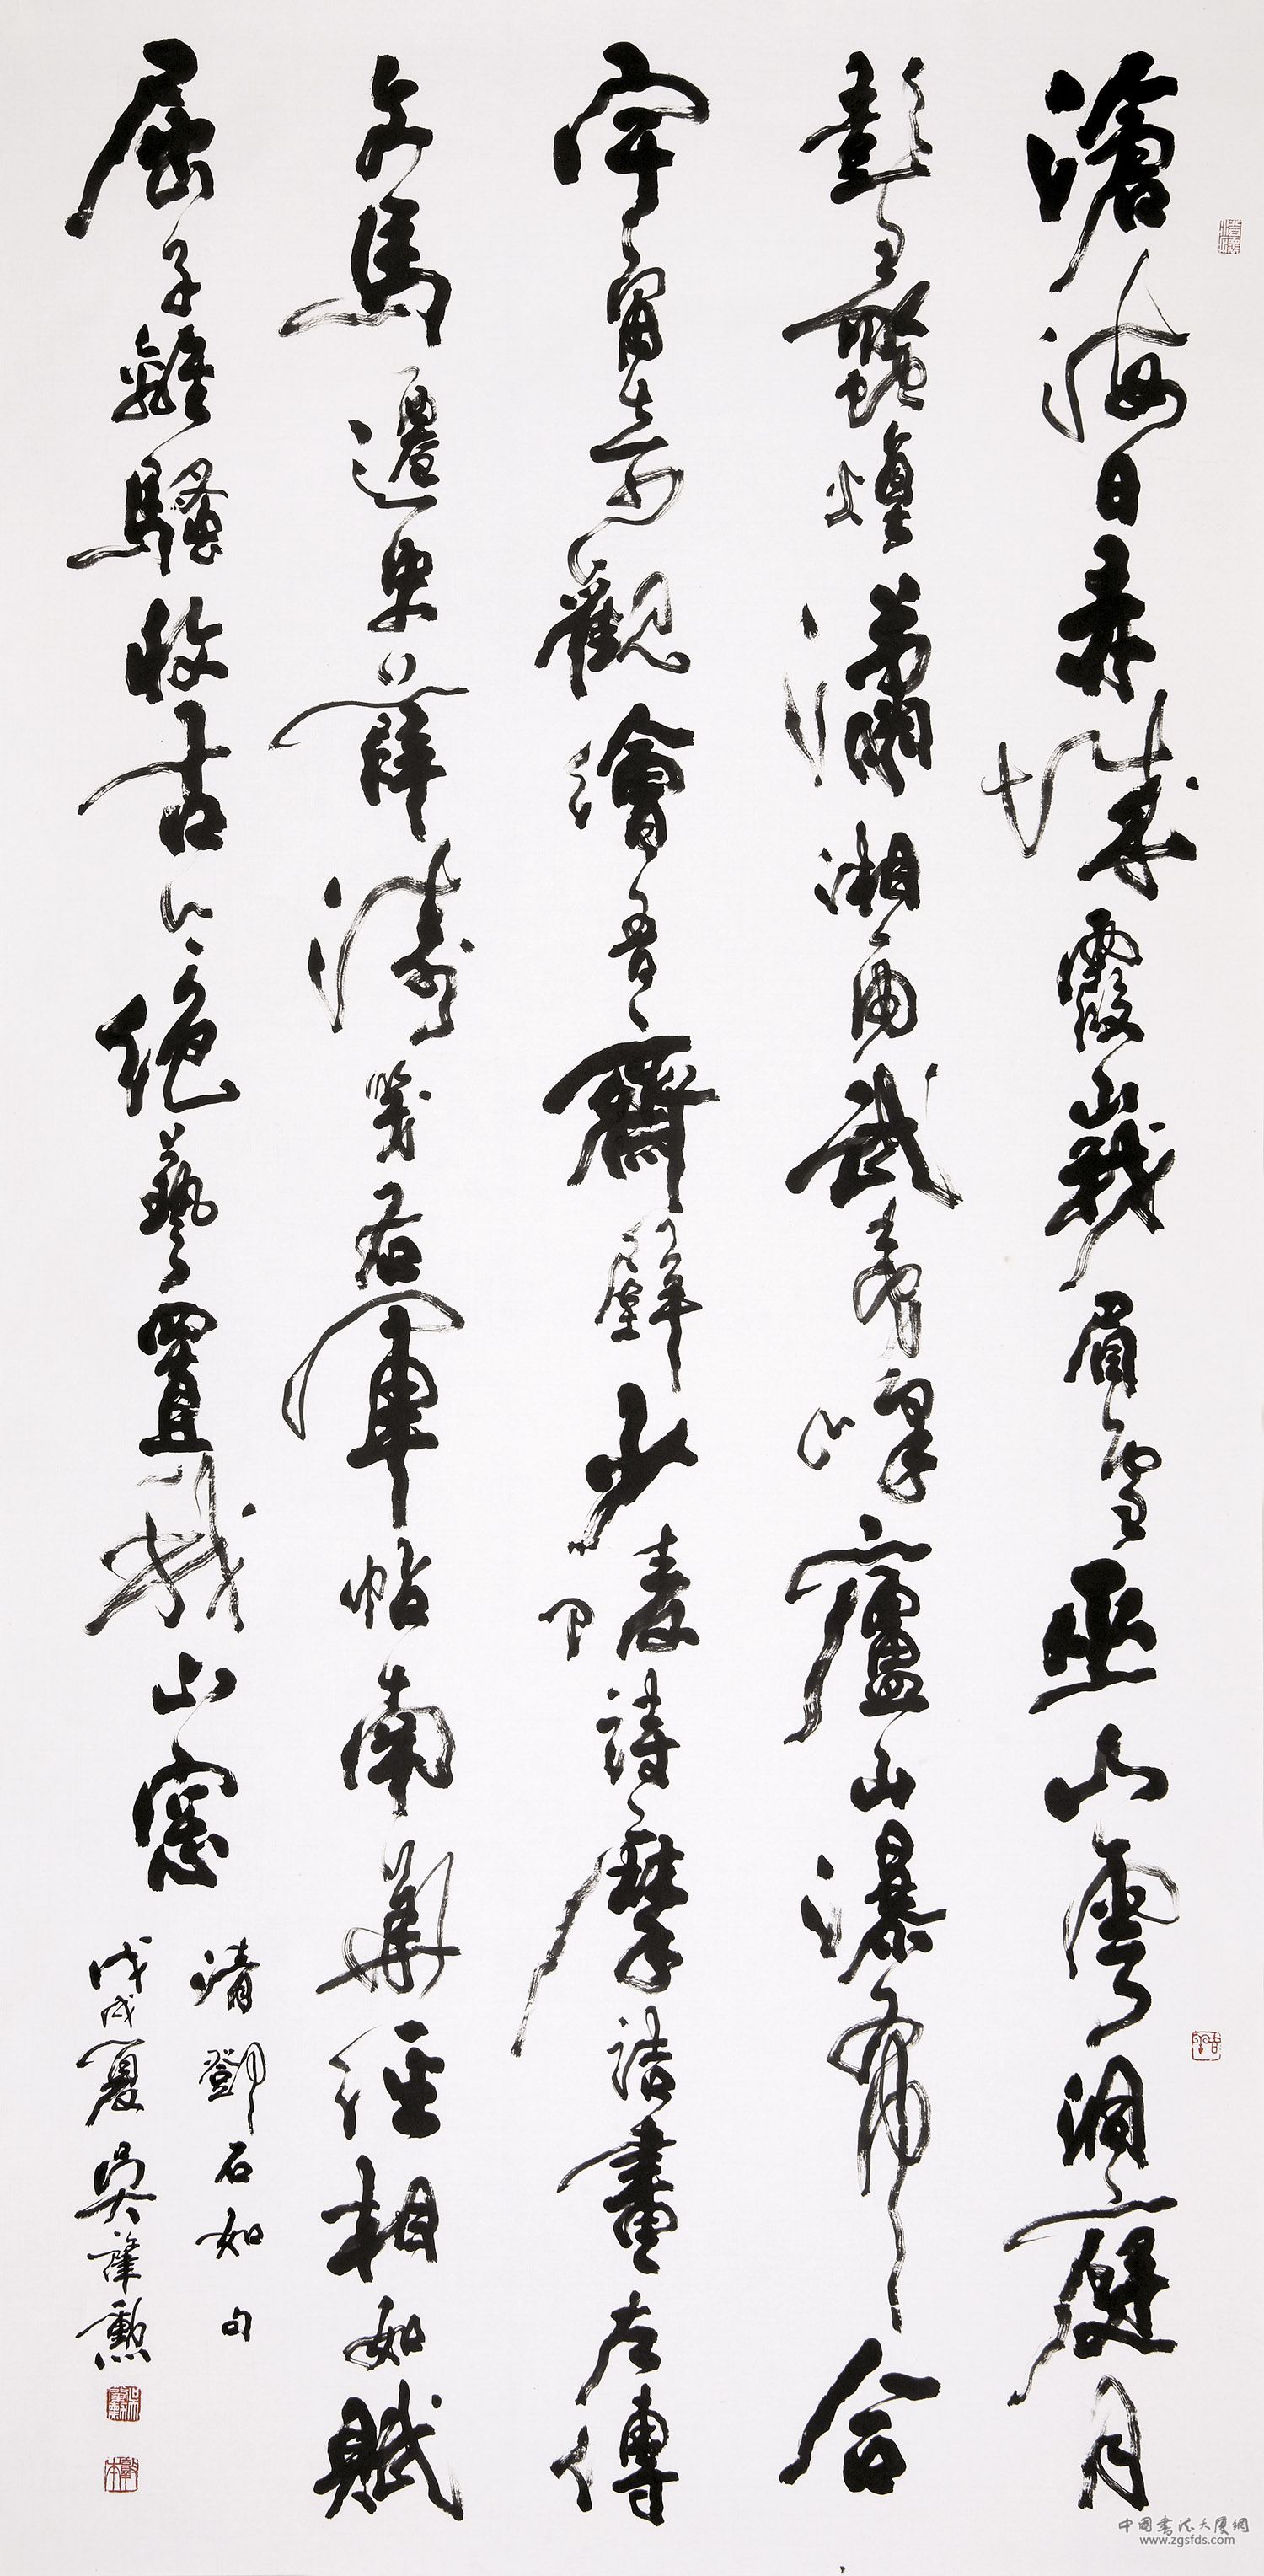 滄海日赤城霞峩眉雪巫山雲洞庭月
彭蠡煙瀟湘雨武夷峰廬山瀑布合
宇宙奇觀繪吾齋壁少陵詩摩詰畫左傳
文馬遷史薛濤箋右軍帖南華經相如賦
屈子離騷收古今絕藝置我山窓
清鄧石如句
戊戌夏吳肇勳
中國書法大厦網
www.zgsfds.com